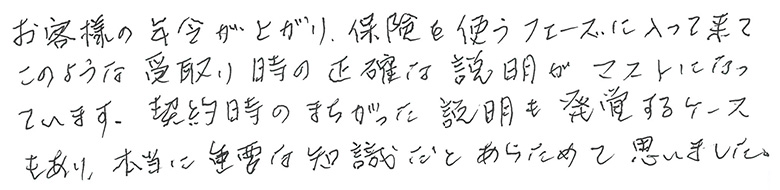 お客様の年令が上がり、保険を使うフェーズに入って来て
このような受取り時の正確な説明がマストになっ
ています。契約時のまちがった説明も発覚するケース
もあり、本当に重要な知識だとあらためて思いました。